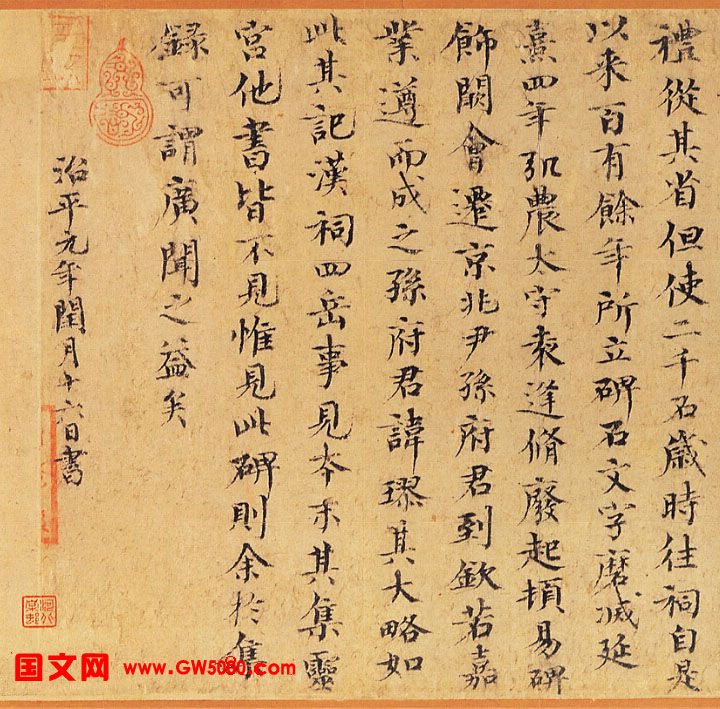 禮從其省但使二千石歲時往祠自是
以来百有餘年所立碑石文字磨滅延
熹四年弘農太守袁逢脩廢起頓易碑
飾闕會遷京兆尹孫府君到欽若嘉
業遵而成之孫府君諱璆其大略如
此其記漢祠四岳事見本末其集靈
宫他書皆不見惟見此碑則余於集
録可謂廣聞之益矣
治平元年閏月十六日書
国文网 www.GW5000.com